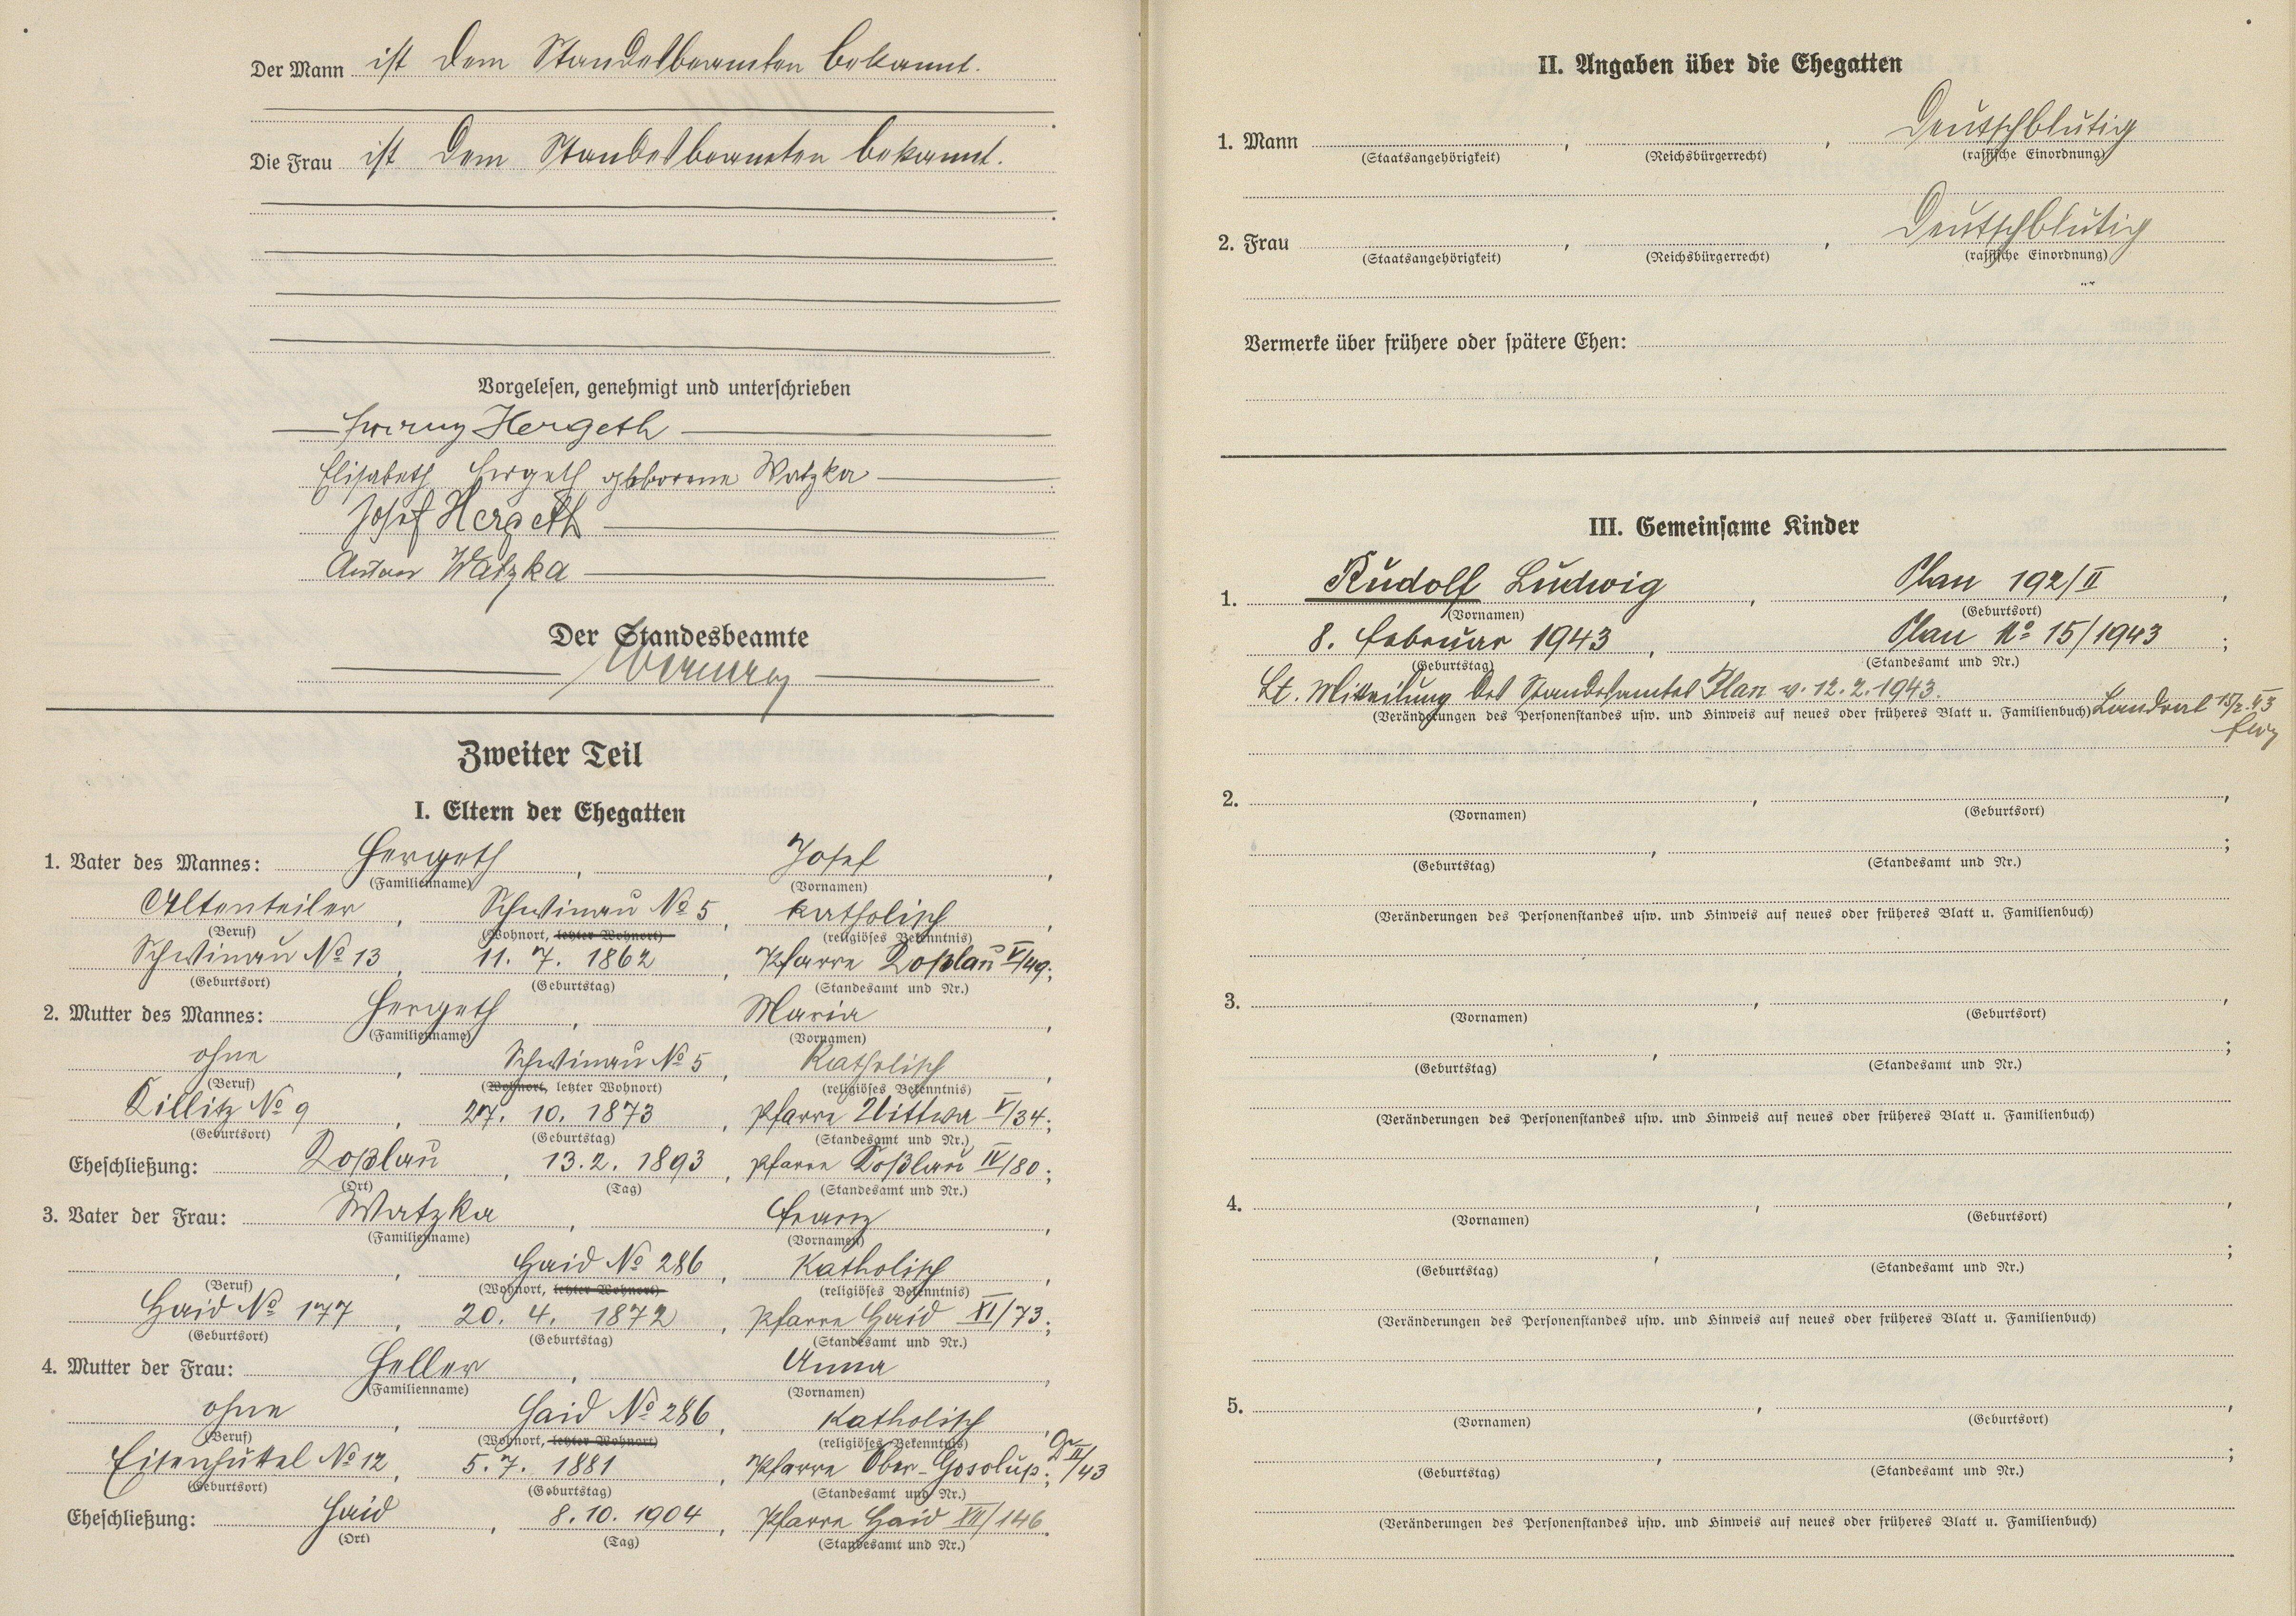 Der Mann ist dem Standesbeamten bekannt.
Die Frau ist dem Standesbeamten bekannt.
Vorgelesen, genehmigt und unterschrieben
Franz Hergeth
Elisabeth Hergeth geborene Watzka
Josef Hergeth
Anton Watzka
Der Standesbeamte
Zweiter Teil
I. Eltern der Ehegatten
1. Vater des Mannes: Hergeth, Josef,
(Familienname) (Vornamen)
Altenteiler, Schwinau № 5, katholisch,
(Beruf) (Wohnort, letzter Wohnort) (religiöses Bekenntnis)
Schwinau № 13, 11. 7. 1862, Pfarre Loßlau V/49;
(Geburtsort) (Geburtstag) (Standesamt und Nr.)
2. Mutter des Mannes: Hergeth, Maria,
(Familienname) (Vornamen)
ohne, Schwinau № 5, Katholisch,
(Beruf) (Wohnort, letzter Wohnort) (religiöses Bekenntnis)
№ 9, 27. 10. 1873, Pfarre Uittwa V/34;
(Geburtsort) (Geburtstag) (Standesamt und Nr.)
Eheschließung: Loßlau, 13. 2. 1893, Pfarre Loßlau IV/80;
(Ort) (Tag) (Standesamt und Nr.)
3. Vater der Frau: Watzka, Franz,
(Familienname) (Vornamen)
, Haid № 286, Katholisch,
(Beruf) (Wohnort, letzter Wohnort) (religiöses Bekenntnis)
Haid № 177, 20. 4. 1872, Pfarre Haid XI/73;
(Geburtsort) (Geburtstag) (Standesamt und Nr.)
4. Mutter der Frau: Heller, Anna,
(Familienname) (Vornamen)
ohne, Haid № 286, Katholisch,
(Beruf) (Wohnort, letzter Wohnort) (religiöses Bekenntnis)
Eisenhüttel № 12, 5. 7. 1881, Pfarre Ober-Gosolup; II/43
(Geburtsort) (Geburtstag) (Standesamt und Nr.)
Eheschließung: Haid, 8. 10. 1904, Pfarre Haid VII/146.
(Ort) (Tag) (Standesamt und Nr.)
II. Angaben über die Ehegatten
1. Mann , , Deutschblütig
(Staatsangehörigkeit) (Reichsbürgerrecht) (rassische Einordnung)
2. Frau , , Deutschblütig
(Staatsangehörigkeit) (Reichsbürgerrecht) (rassische Einordnung)
Vermerke über frühere oder spätere Ehen:
III. Gemeinsame Kinder
1. Rudolf Ludwig, Plan 192/II,
(Vornamen) (Geburtsort)
8. Februar 1943, Plan № 15/1943;
(Geburtstag) (Standesamt und Nr.)
Lt. Mitteilung des Standesamtes Plan v. 12. 2. 1943.
(Veränderungen des Personenstandes usw. und Hinweis auf neues oder früheres Blatt u. Familienbuch) Landrat
2. , ,
(Vornamen) (Geburtsort)
, ;
(Geburtstag) (Standesamt und Nr.)
(Veränderungen des Personenstandes usw. und Hinweis auf neues oder früheres Blatt u. Familienbuch)
3. , ,
(Vornamen) (Geburtsort)
, ;
(Geburtstag) (Standesamt und Nr.)
(Veränderungen des Personenstandes usw. und Hinweis auf neues oder früheres Blatt u. Familienbuch)
4. , ,
(Vornamen) (Geburtsort)
, ;
(Geburtstag) (Standesamt und Nr.)
(Veränderungen des Personenstandes usw. und Hinweis auf neues oder früheres Blatt u. Familienbuch)
5. , ,
(Vornamen) (Geburtsort)
, ;
(Geburtstag) (Standesamt und Nr.)
(Veränderungen des Personenstandes usw. und Hinweis auf neues oder früheres Blatt u. Familienbuch)